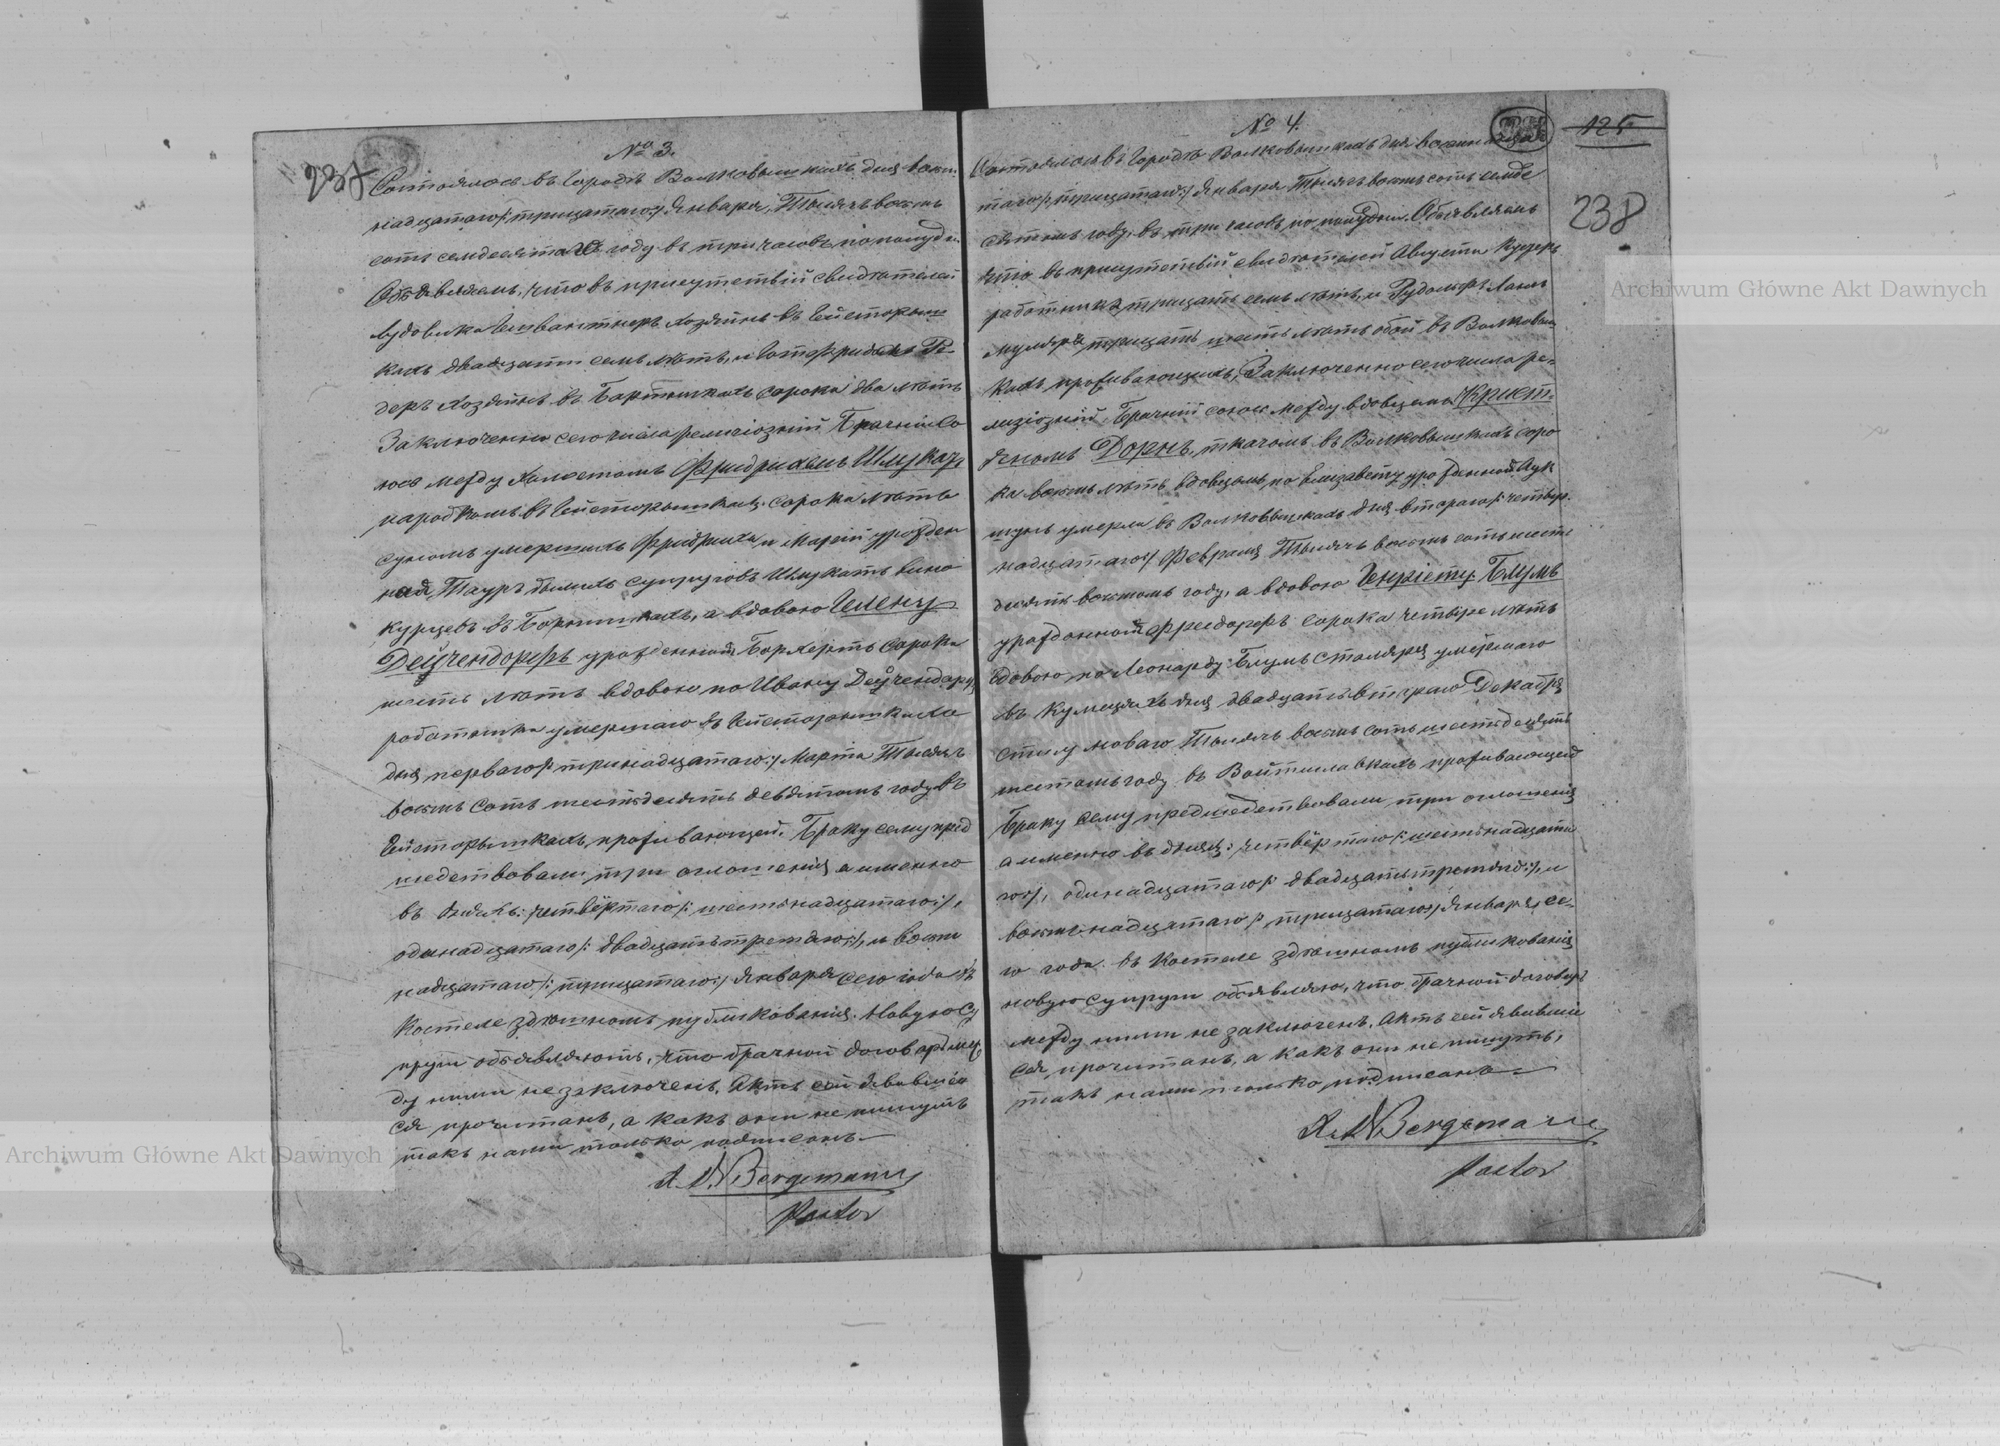 237
№ 3.
Состоялось въ Городѣ Волковышкахъ дня восем-
надцатаго /: тридцатаго :/ Января, Тысяча восемь
сотъ семдесятаго году въ три часовъ по полудни.
Объявляемъ, что въ присутствіи свидѣтелей
Лудовика хозяинъ въ
кахъ двадцати семь лѣтъ, и Готфрида Ре-
деръ хозяинъ въ Бартникахъ сорока два лѣтъ
Заключенно сего числа религіозній Брачній со
юсъ между Холостомъ Фридрихомъ Шлукатъ,
сорока лѣтъ
сыномъ умершихъ Фридриха и Маріи урожден
ной Тауръ бывшихъ супруговъ Шлукатъ
въ а вдовою Гелену
Дейчендорфъ урожденной Борхертъ сорока
шесть лѣтъ вдовою по Ивану Дейчендорф
работника умершаго въ
дня перваго /: тринадцатаго :/ Марта Тысяча
восемь сотъ шестьдесятъ девятомъ году въ
проживающей. Браку сему пред
шедствовали три оглошенія а именно
въ дняхъ: четвёртаго /: шестьнадцатаго :/,
одинадцатаго /: двадцать третяго :/, и восем
надцатаго /: тридцатаго :/ Января сего года въ
Костеле здѣшномъ публикованія. Новую Су
пруги объявляютъ, что брачной договоръ меж
ду ними не заключенъ. Актъ сей явившем
ся прочитанъ, а какъ они не пишутъ
такъ нами только подписанъ.
A. W. Bergemann
Pastor
№ 4.
125
238
Состоялось въ Городѣ Волковышкахъ дня восемнадца
таго /: тридцатаго :/ Января Тысяча восемь сотъ семде
сятомъ году, въ три часовъ по полудни. Объявляемъ
что въ присутствіи свидѣтелей Августа Кудеръ
работника тридцать семь лѣтъ, и Рудольфъ
муляра тридцать шесть лѣтъ обой въ Волковыш
кахъ проживающихъ, Заключенно сего числа ре-
лизіозній Брачній союсъ между вдовцемъ Христ-
Дорнъ, ткачомъ въ Волковышкахъ соро
ка восемь лѣтъ вдовцемъ по Елизавету урожденной
умерла въ Волковышкахъ дня втораго /: четыр-
надцатаго :/ Февраля Тысяча восемь сотъ шесть
десятъ восьмомъ году, а вдовою Генріету Блумъ
урожденной сорока четыре лѣтъ
вдовою по Леонарду Блумъ Столяра умершаго
въ дня двадцать втораго Декабря
стилу новаго Тысяча восемь сотъ шестьдесятъ
шестомъ году въ проживающей
Браку сему предшедствовали три оглошенія
а именно въ дняхъ: четвёртаго /: шестьнадцата
го :/, одинадцатаго /: двадцать третяго :/, и
восемьнадцатаго /: тридцатаго :/ Января се-
го года въ Костеле здѣшномъ публикованія
новую супруги объявляю, что брачной договоръ
между ними не заключенъ. Актъ сей явившіе
ся прочитанъ, а какъ они не пишутъ,
такъ нами только подписанъ
A. W. Bergemann
Pastor
Archiwum Główne Akt Dawnych
Archiwum Główne Akt Dawnych